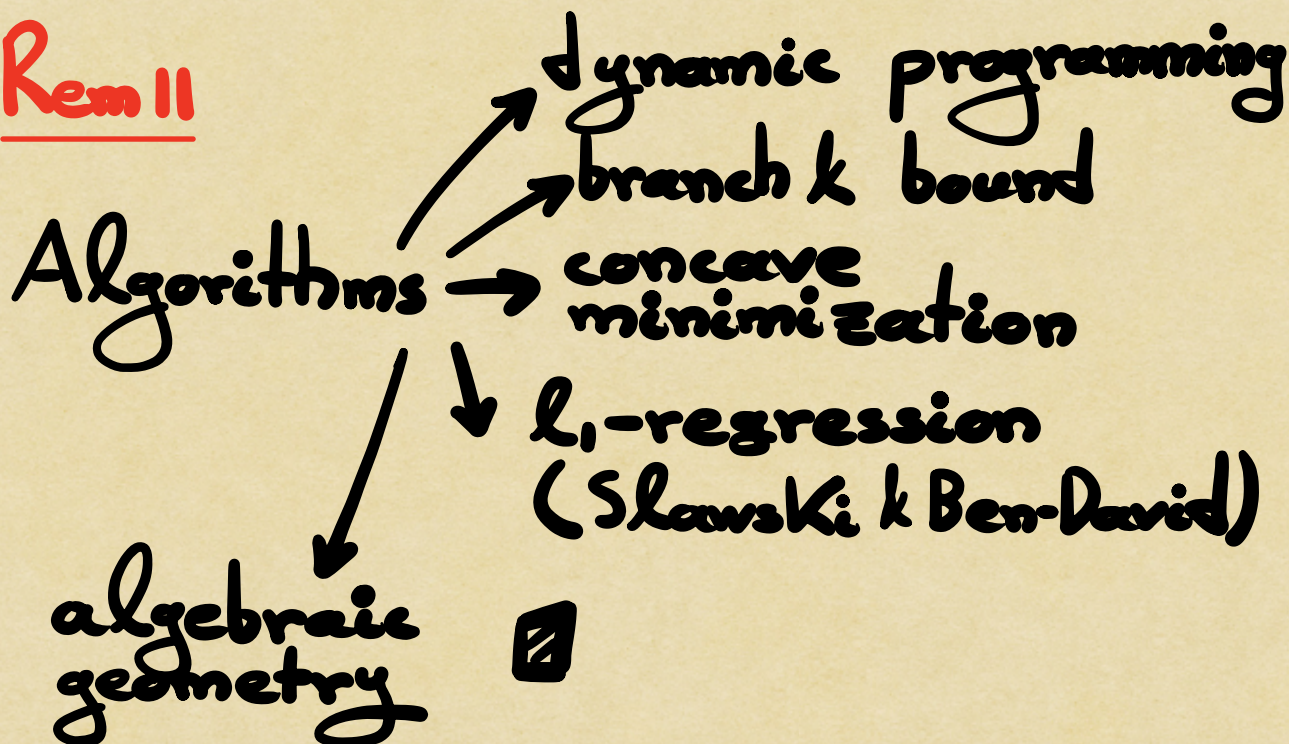 Rem 11
dynamic programming
branch & bound
Algorithms
concave
minimization
l₁-regression
(Slawski & Ben-David)
algebraic
geometry